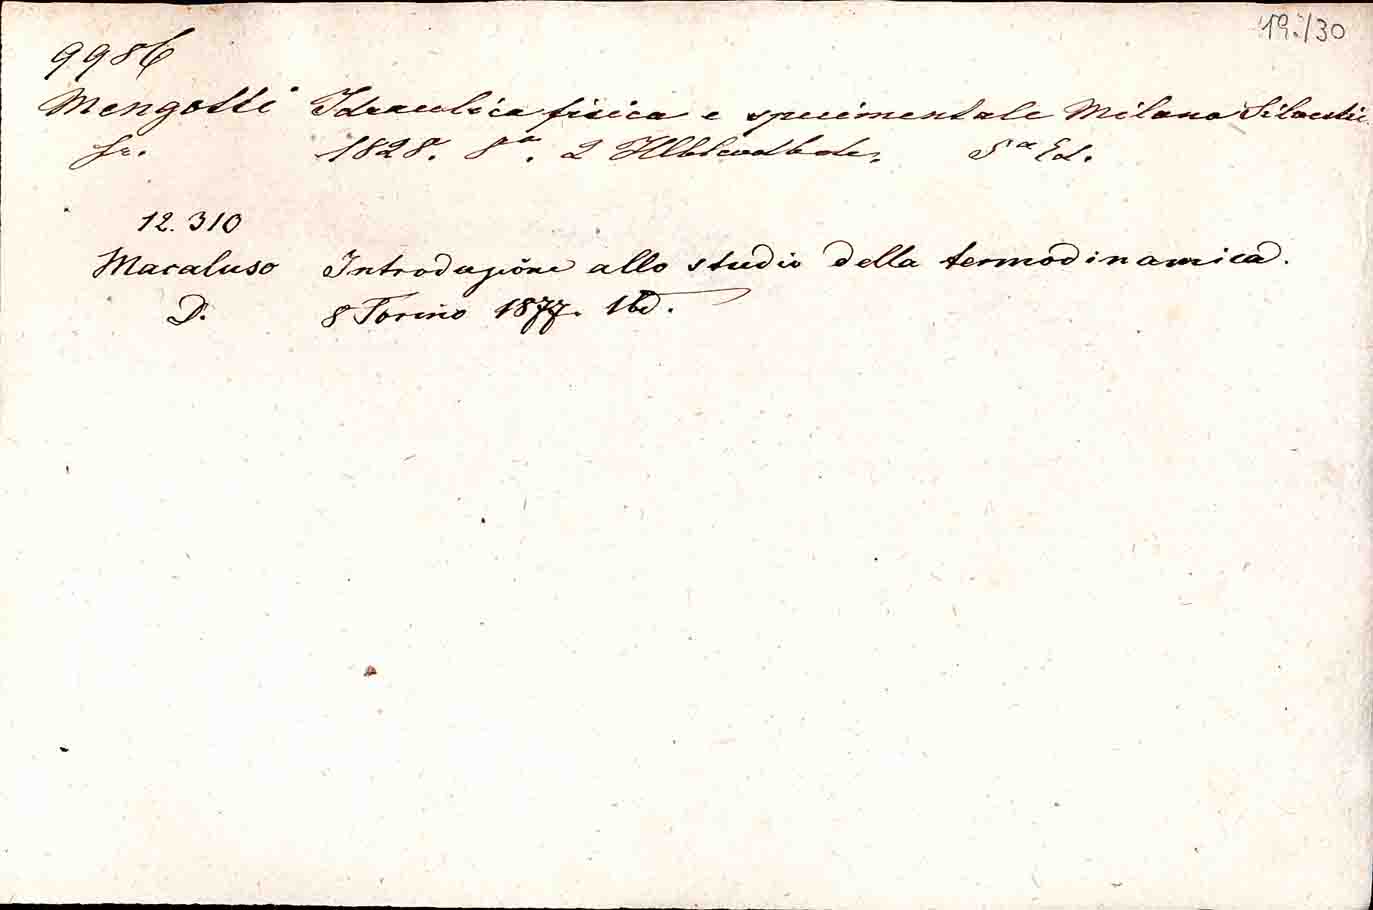 19./30
9986
Mengotti Idraulica fisica e sperimentale Milano Silvestri
Fr. 1828. 8°. 2 Hlblwdbde. 5ª Ed.
12.310
Macaluso Introduzione allo studio della termodinamica.
D. 8 Torino 1877. 1bd.